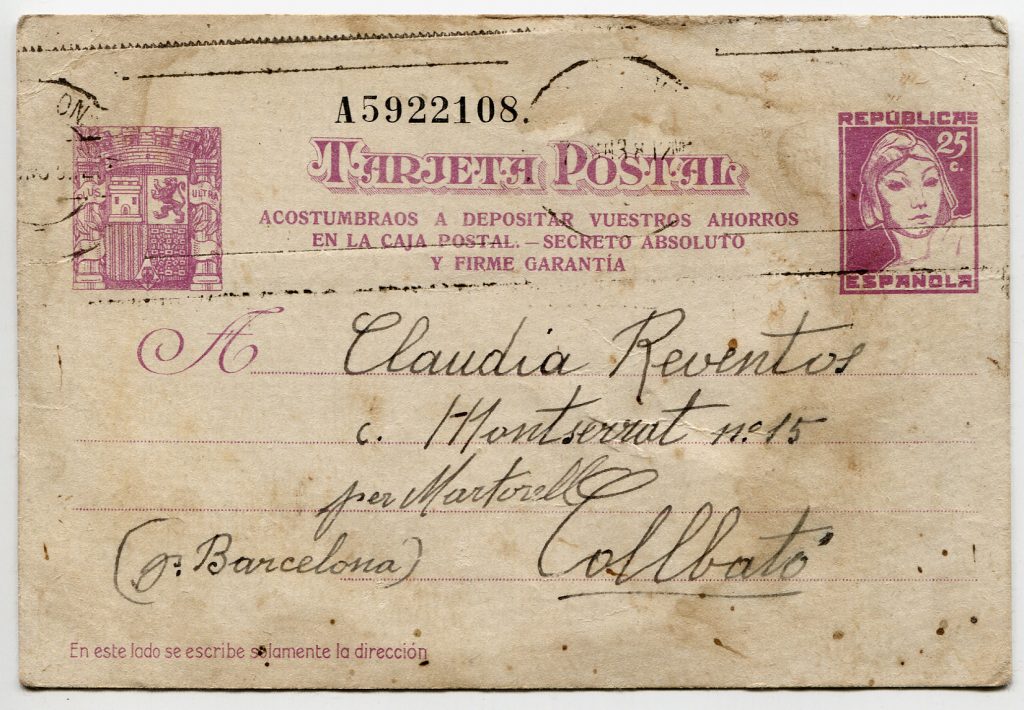 A5922108.
TARJETA POSTAL
REPÚBLICA
25
c.
PLUS ULTRA
ACOSTUMBRAOS A DEPOSITAR VUESTROS AHORROS
EN LA CAJA POSTAL. — SECRETO ABSOLUTO
Y FIRME GARANTÍA
ESPAÑOLA
A Claudia Reventos
c. Montserrat nº 15
per Martorell
Collbató
Barcelona)
En este lado se escribe solamente la dirección